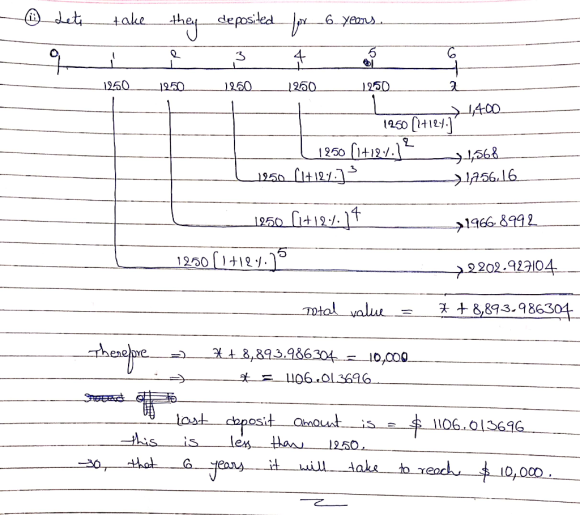 (ii) Lets take they deposited for 6 years.
0 1 2 3 4 5 6
1250 1250 1250 1250 1250 x
1250 [1+12%] → 1,400
1250 [1+12%]² → 1,568
1250 [1+12%]³ → 1,756.16
1250 [1+12%]⁴ → 1966.8992
1250 [1+12%]⁵ → 2202.927104
Total value = x + 8,893.986304
Therefore ⇒ x + 8,893.986304 = 10,000
⇒ x = 1106.013696
last deposit amount is = $ 1106.013696
this is less than 1250.
so, that 6 years it will take to reach $ 10,000.